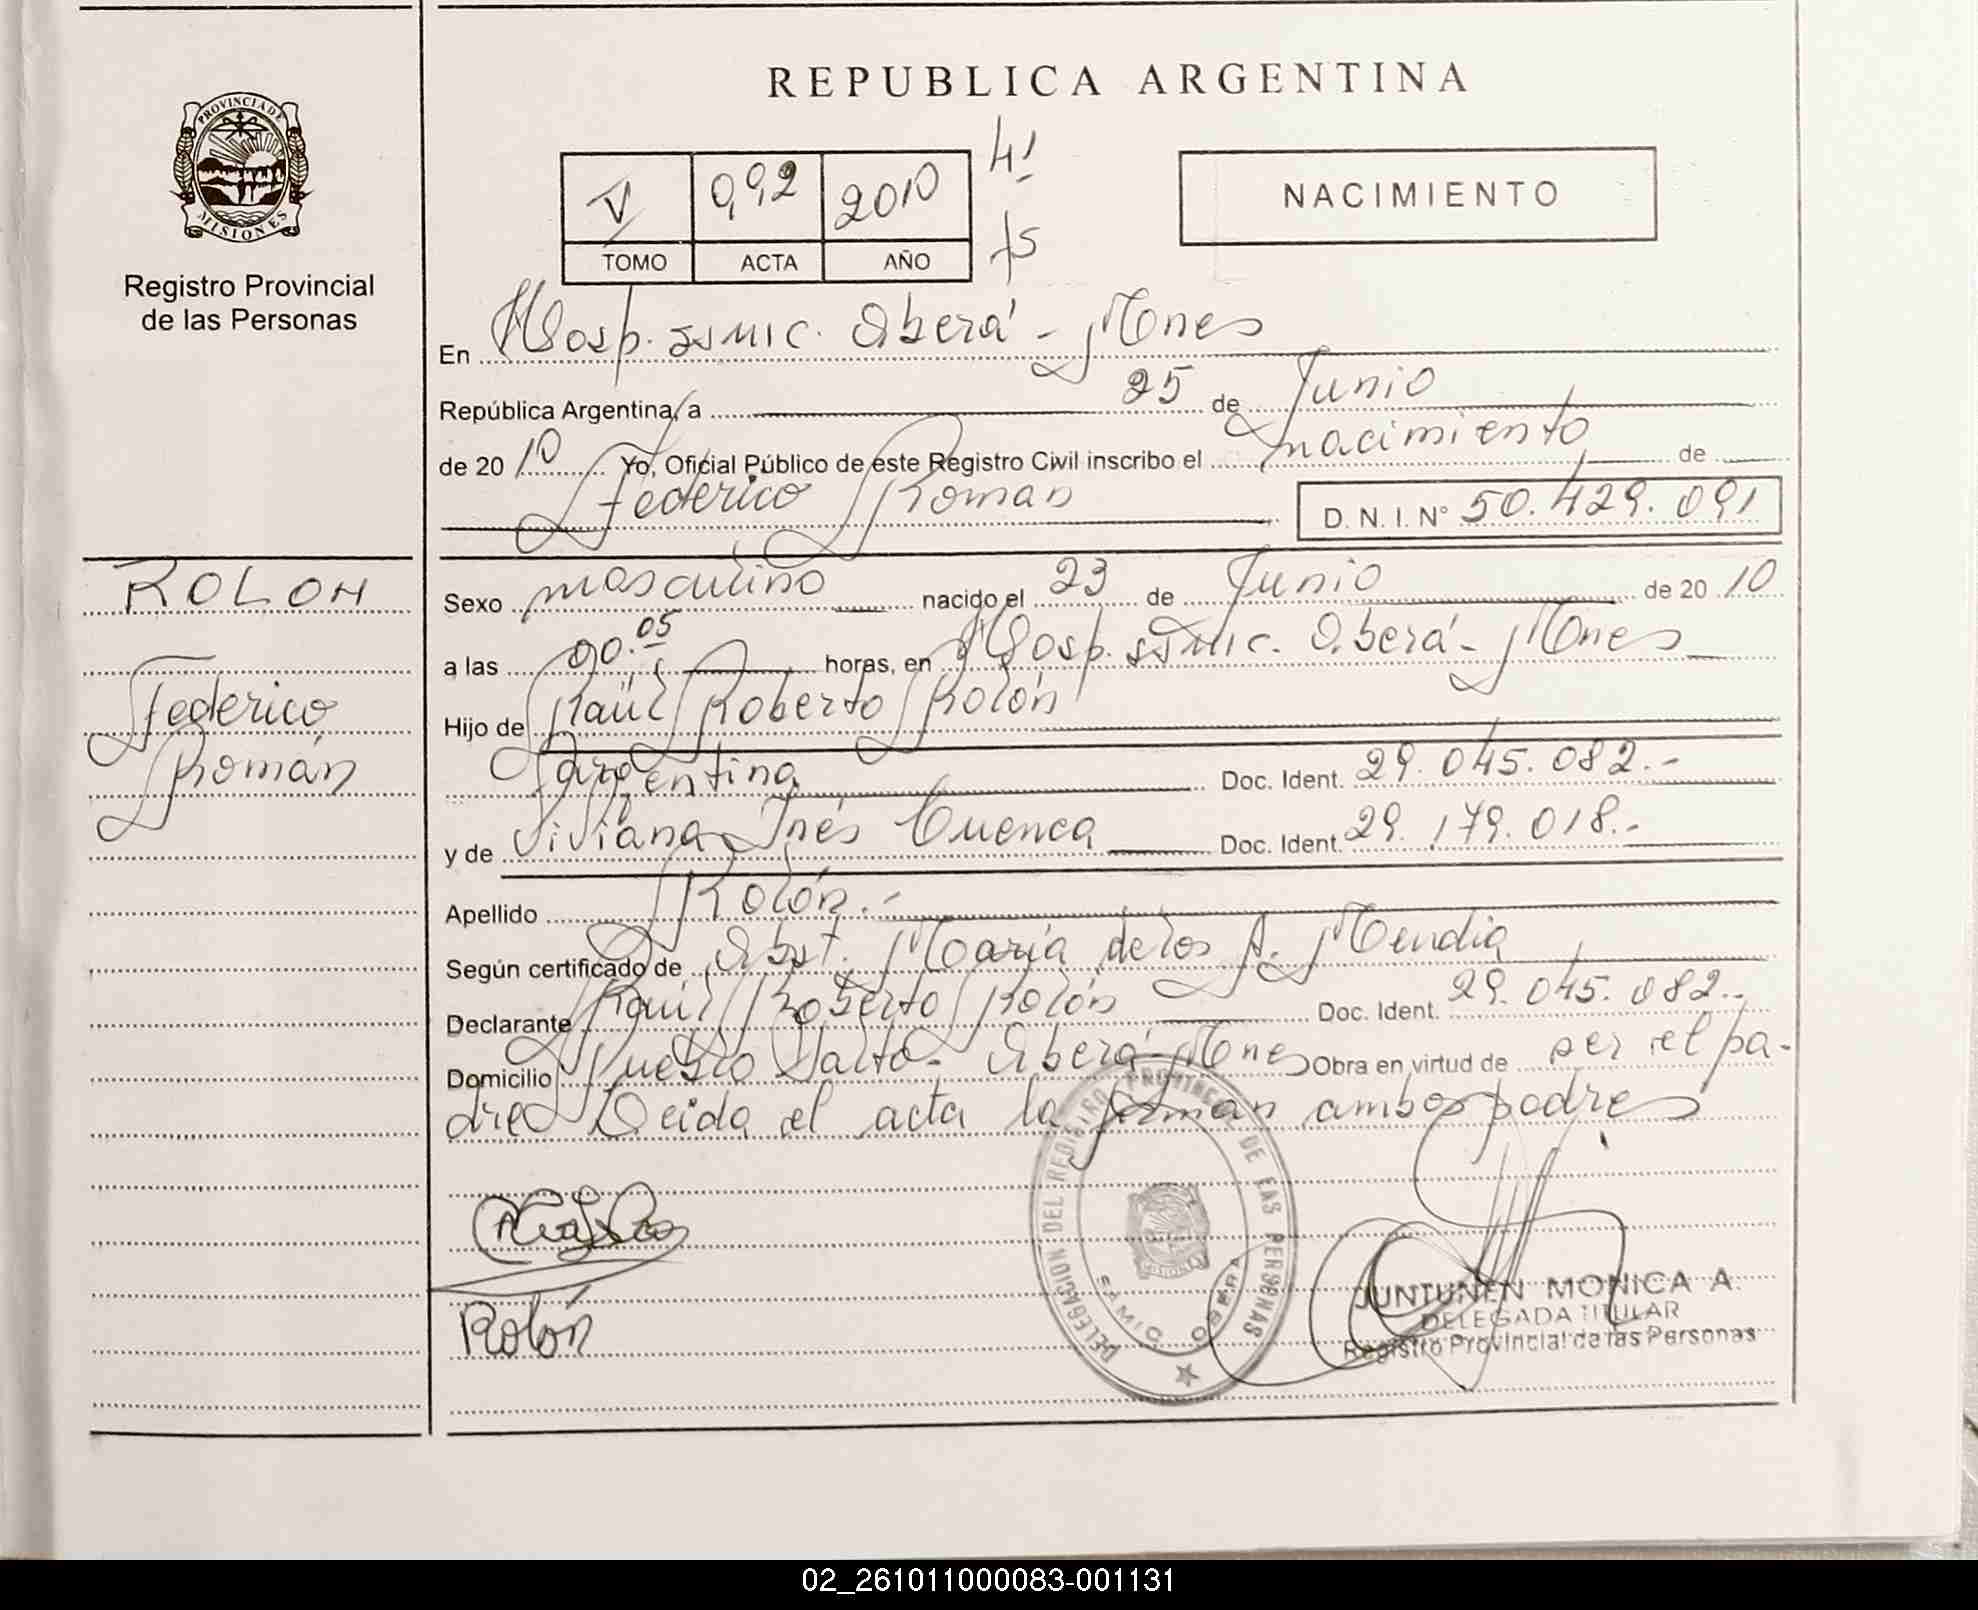 REPUBLICA ARGENTINA
PROVINCIA DE MISIONES
Registro Provincial
de las Personas
V 092 2010
TOMO ACTA AÑO
NACIMIENTO
En Hosp. SSMIC. Oberá - Mnes
República Argentina, a 25 de Junio
de 2010 Yo, Oficial Público de este Registro Civil inscribo el nacimiento de
Federico Román D.N.I. N° 50.429.091
ROLON
Federico
Román
Sexo masculino nacido el 23 de Junio de 2010
a las 00.05 horas, en Hosp. SSMIC. Oberá - Mnes
Hijo de Raúl Roberto Rolón
Argentina Doc. Ident. 29.045.082.-
y de Viviana Inés Cuenca Doc. Ident. 29.179.018.-
Apellido Rolón.-
Según certificado de Obst. María de los A. Mendia
Declarante Raúl Roberto Rolón Doc. Ident. 29.045.082.-
Domicilio Pueblo Salto - Oberá - Mnes Obra en virtud de ser el pa-
dre Leida el acta la firman ambos padres
Rolón
DELEGACION DEL REGISTRO PROVINCIAL DE LAS PERSONAS
SAMIC OBERA
JUNTUNEN MONICA A.
DELEGADA TITULAR
Registro Provincial de las Personas
02_261011000083-001131